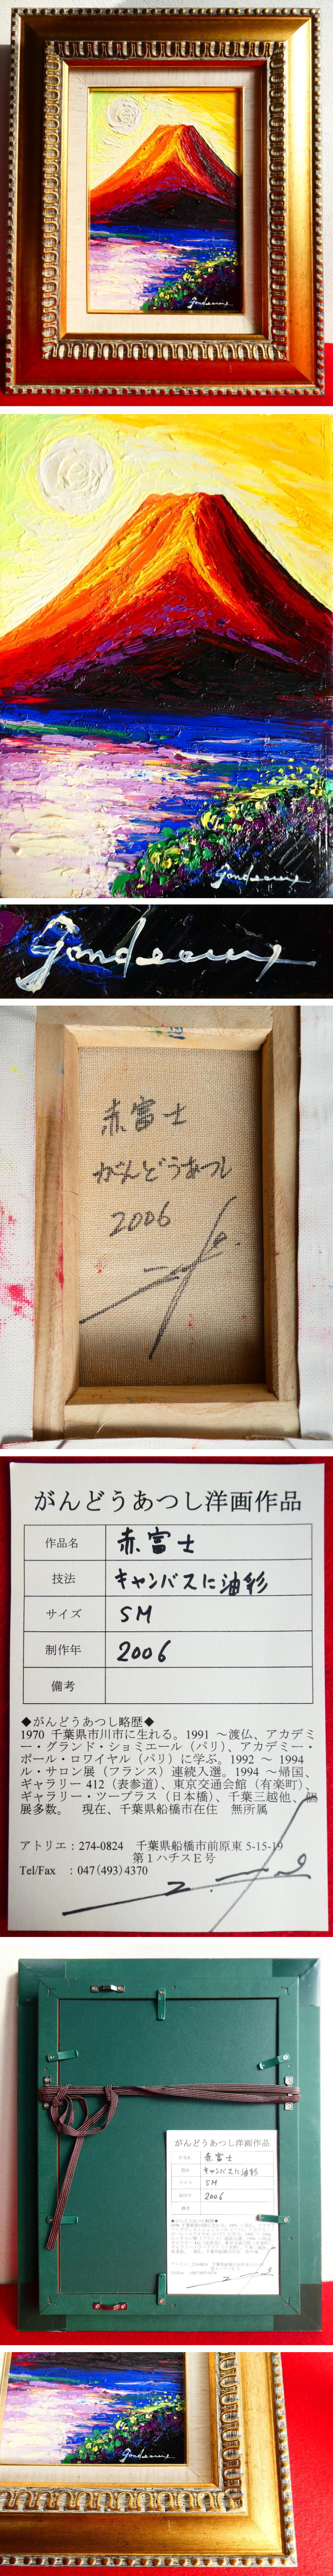 Gondeaux
Gondeaux
Gondeaux
赤富士
がんどうあつし
2006
がんどうあつし洋画作品
作品名 赤富士
技法 キャンバスに油彩
サイズ SM
制作年 2006
備考
◆がんどうあつし略歴◆
1970 千葉県市川市に生れる。1991 ～渡仏、アカデミ
ー・グランド・ショミエール（パリ）、アカデミー・
ポール・ロワイヤル（パリ）に学ぶ。1992 ～ 1994
ル・サロン展（フランス）連続入選。1994 ～帰国、
ギャラリー 412（表参道）、東京交通会館（有楽町）、
ギャラリー・ツープラス（日本橋）、千葉三越他、個
展多数。 現在、千葉県船橋市在住 無所属
アトリエ：274-0824 千葉県船橋市前原東 5-15-19
第１ハチスＥ号
Tel/Fax ：047(493)4370
がんどうあつし洋画作品
作品名 赤富士
技法 キャンバスに油彩
サイズ SM
制作年 2006
備考
Gondeaux